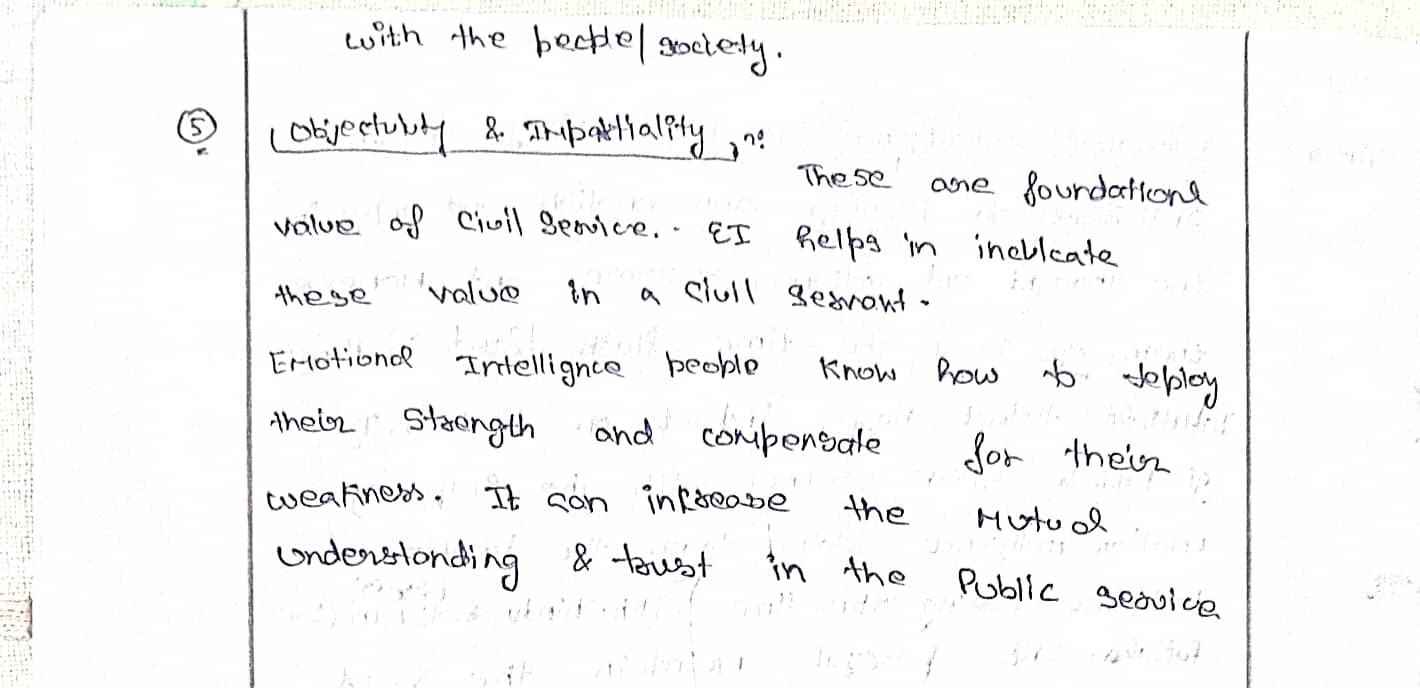 with the people/society.
⑤ Objectivity & Impartiality :-
These are foundational
value of Civil Service. EI helps in inculcate
these value in a Civil Servant.
Emotional Intellignce people know how to deploy
their Strength and compensate for their
weakness. It can increase the Mutual
understanding & trust in the Public service